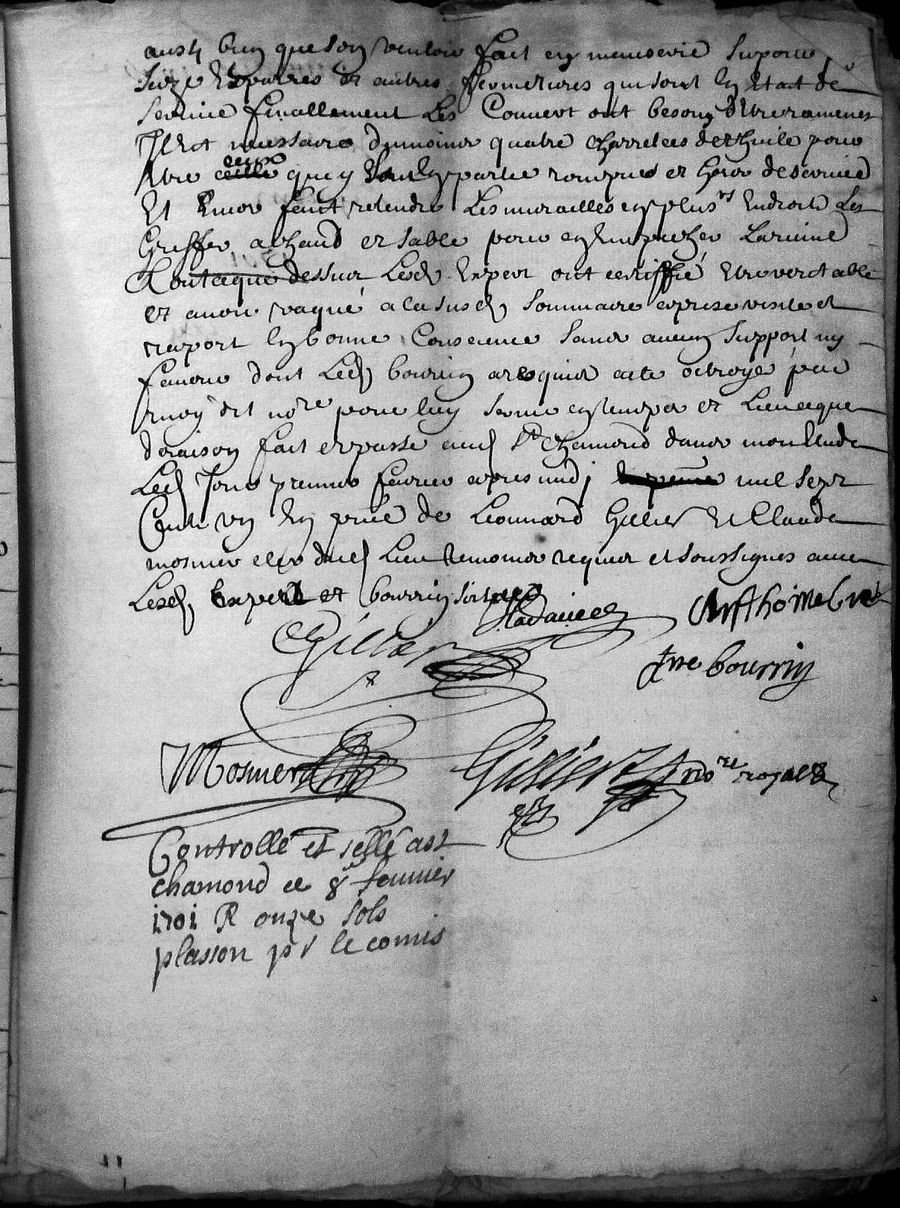 aussy bien que son ventoir fait en menuserie Sa porte
Serrures et autres fermetures qui sont en Estat de
Service finallement Les Couvert ont besoing d'Etre ramenes
Il est nessaire du moins quatre charretees de thuile pour
Etre ceux que y sont en partie rompues et hors de service
Et Enor faut retendre Les murailles en plusrs Endroits Les
Greffer a chaud et sable pour en Empecher La ruine
Tout ce que dessur Lesd Expert ont certiffié Etre veritable
et avoir vaqué a la susd sommaire aprise visite et
raport En bonne Consience Sans aucun Support ny
faveur dont Led bourrin a requier acte octroyé par
moy dit nore pour luy servir en temps et Lieu ce que
de raison fait et passé aud St chamond dans mon Etude
Led Jour premier février apres midj mil sept
Cents un En pnce de Leonnard Gilier Et Claude
mosnier clerc dud Lieu temoins requier et soussignes avec
Lesd Expert et bourrin
Gillier
Anthoine
Jne bourrin
Mosnier
Gillier nore royal
Controllé et sellé a st
chamond ce 8e feuvrier
1701 R onze sols
plasson pr le comis